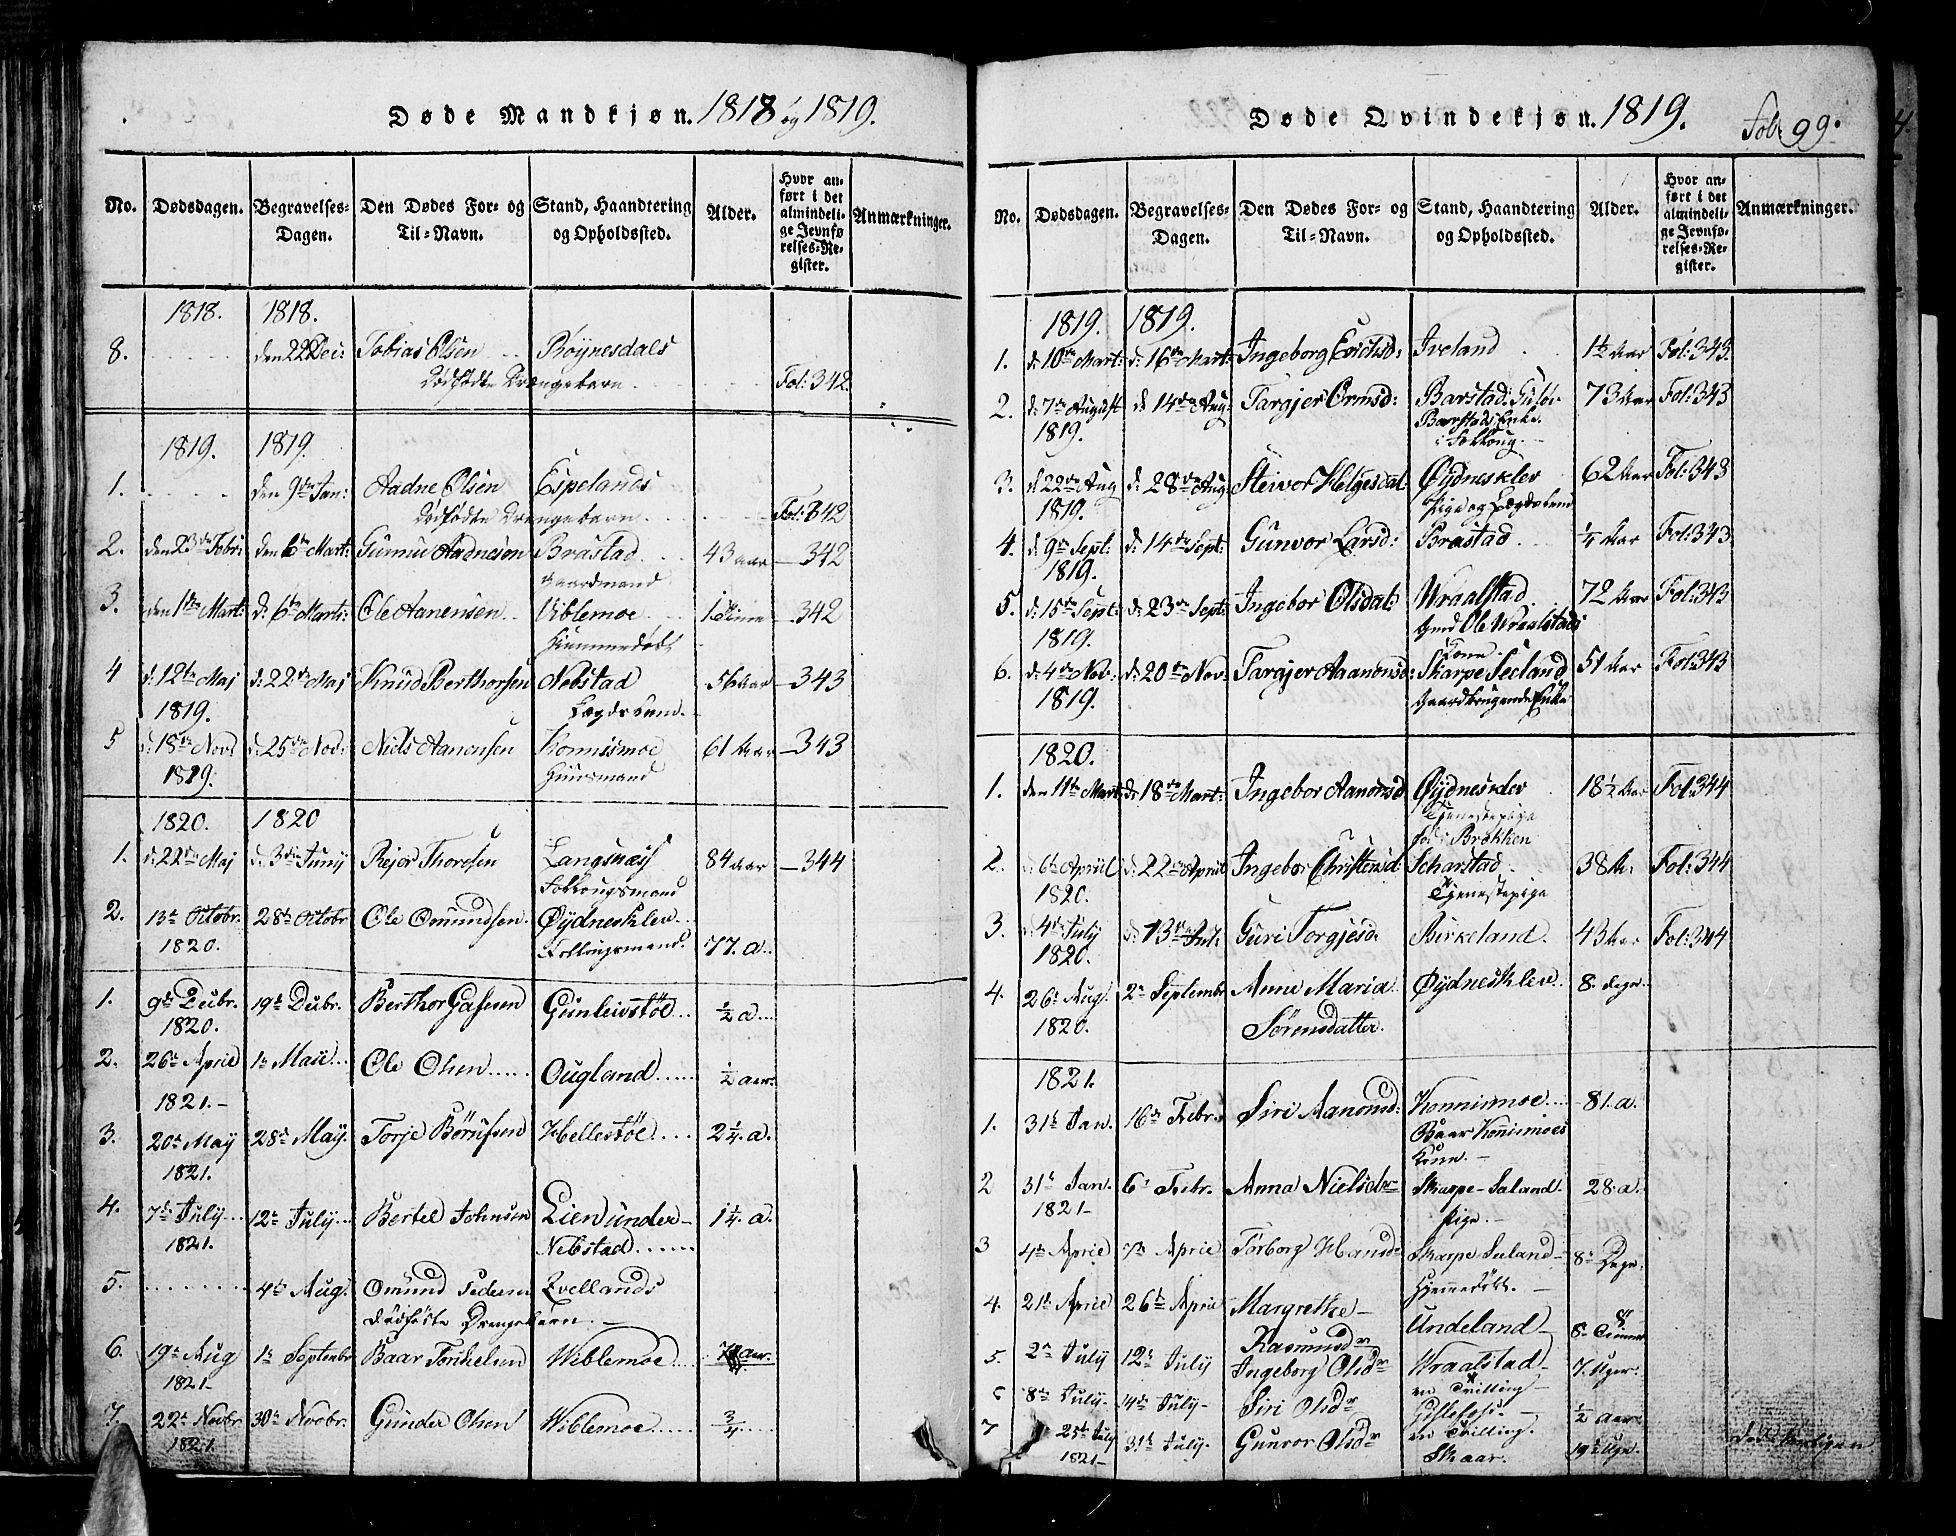 Døde Mandkjøn. 1818 og 1819.
No. Dødsdagen. Begravelses-Dagen. Den Dødes For- og Til-Navn. Stand, Haandtering og Opholdssted. Alder. Hvor anført i det almindelige Jevnførelses-Register. Anmærkninger.
1818. 1818.
8. den 22 Dec: Tobias Olsen Röynesdals
dödfödte Drængebarn Fol: 342
1819. 1819.
1. den 9de Jan: Aadne Olsen Espelands
dödfödte Drengebarn Fol: 342
2. den 23de Febr: den 6te Mart: Gunnu Aadnesen Bråstad 43 aar 342
Gaardmand
3. den 1ste Mart: d: 6te Mart: Ole Aanensen Viblemoe 342
Hiemmedöbt
4 d: 12te Maj d: 22de Maj Knud Berthorsen Nebstad 56 Aar 343
1819. Lægdslem
5 d: 18de Nov: d: 25de Nov: Niels Aanonsen Konnismoe 61 Aar 343
1819. Huusmand
1820. 1820
1. d: 22de Maj d: 3die Junij Rejer Thoresen Langsnæs 84 aar 344
Folkougsmand
2. 13te Octobr. 28de Octobr Ole Omundsen Øydnesklev
1820. 77. a.
1. 9de Decbr. 19de Decbr. Berthor Gasmun Gunleivstöe ½ a.
1820.
2. 26de April 1te Maii Ole Olsen Ougland ½ aar.
1821.
3. 20de Maÿ 28de Maÿ. Torje Börufsen Hellestöe 2¼. a.
1821.
4. 7de Julÿ 12te Julÿ Bertel Johnsen Lien under 1¼. a.
1821. Nebstad
5. 4de Aug. Omund Pedersen Qvellands
dödföste Drengebarn.
6. 19de Aug 1te Septembr Baar Torkelsen Wiblemoe aar.
1821
7. 22de Novbr. 30te Novbr. Gunder Olsen Wiblemoe ¾
1821.
Døde Qvindekjøn. 1819. Fol: 99.
No. Dødsdagen. Begravelses-Dagen. Den Dødes For- og Til-Navn. Stand, Haandtering og Opholdssted. Alder. Hvor anført i det almindelige Jevnførelses-Register. Anmærkninger.
1819. 1819.
1. d: 10de Mart: d: 16de Mart: Ingeborg Erichsd: Iveland 1½ Aar Fol: 343.
2. d: 7de August d: 14de Aug: Targjer Ormsd: Barstad: 73 Aar Fol: 343
1819. Barstads Enke
i Folkoug.
3. d: 22de Aug d: 28de Aug: Steivor Helgesdat: Øydnesklev 62 Aar Fol: 343
1819. Pige og Lægdslem
4. d: 9de Sept: d: 14de Sept: Gunvor Larsd: Bråstad ¼ Aar Fol: 343
1819.
5. d: 15de Sept: d: 23de Sept: Ingebor Olsdat: Wraalstad 72 Aar Fol: 343
1819. Gmd Ole Wraalstads
Kone.
6. d: 4de Nov: d: 20de Nov: Targjer Aanonsd: Skarpe Seeland 51 Aar Fol: 343
1819. Gaardbrugende Enke
1820.
1. den 11te Mart d: 18de Mart: Ingebor Aanonsd Øydnesklev 18½ Aar Fol: 344
Tjenestepige
föd i Brøkken
2. 6te April d: 22de April Ingebor Christensd: Scharstad 38 A. Fol: 344
1820. Tjenestepige
3. 4de July d: 13de Jul. Guri Torgjesd. Birkeland. 43 Aar Fol: 344
1820.
4. 26de Aug. 2de Septembr Anne Maria Øydnesklev 8. dage
1820. Sörensdatter.
1821.
1. 31te Jan. 16de Febr. Siri Aanonsd: Konnismoe 81. a.
Baar Konnismoes
Kone.
2 31te Jan. 6te Febr. Anna Nielsdtr Skarpe-Saland. 28. a.
1821 Pige.
3 4de April 7de April Torborg Hansd Skarpe Seeland 8te Dage.
Hjemmedöbt.
4. 21de April 26de April Margrethe Undeland 8te
Rasmusdr
5. 2de Julÿ 12te Julÿ Ingeborg Olsdr Wraalstad 7. Uger.
en Tvilling
6 8de Julÿ. 14de Julÿ Siri Olsdr ½ aar
en Tvilling.
7 25de July 31te Julÿ. Gunvor Olsdr Skaar. 19de Uge.
1821